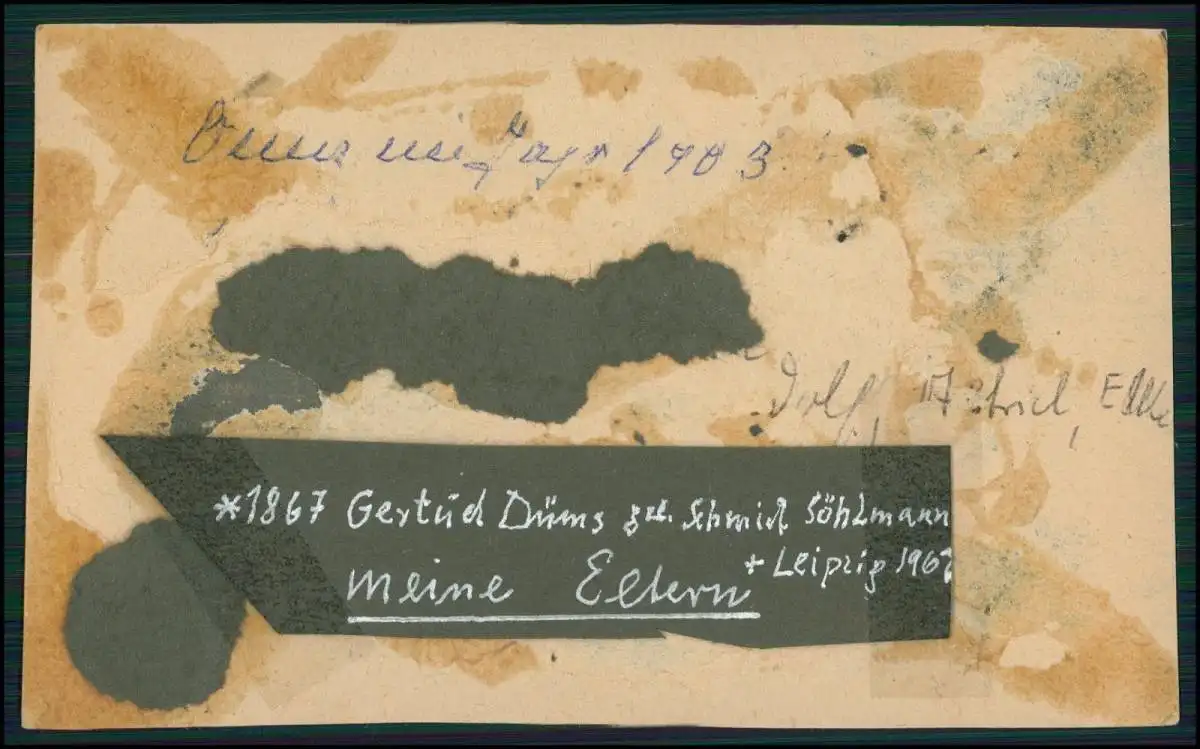 1903
Dolf, Astrid, Elke
*1867 Gertud Düms geb. Schmidt Söhlmann
+ Leipzig 1967
meine Eltern